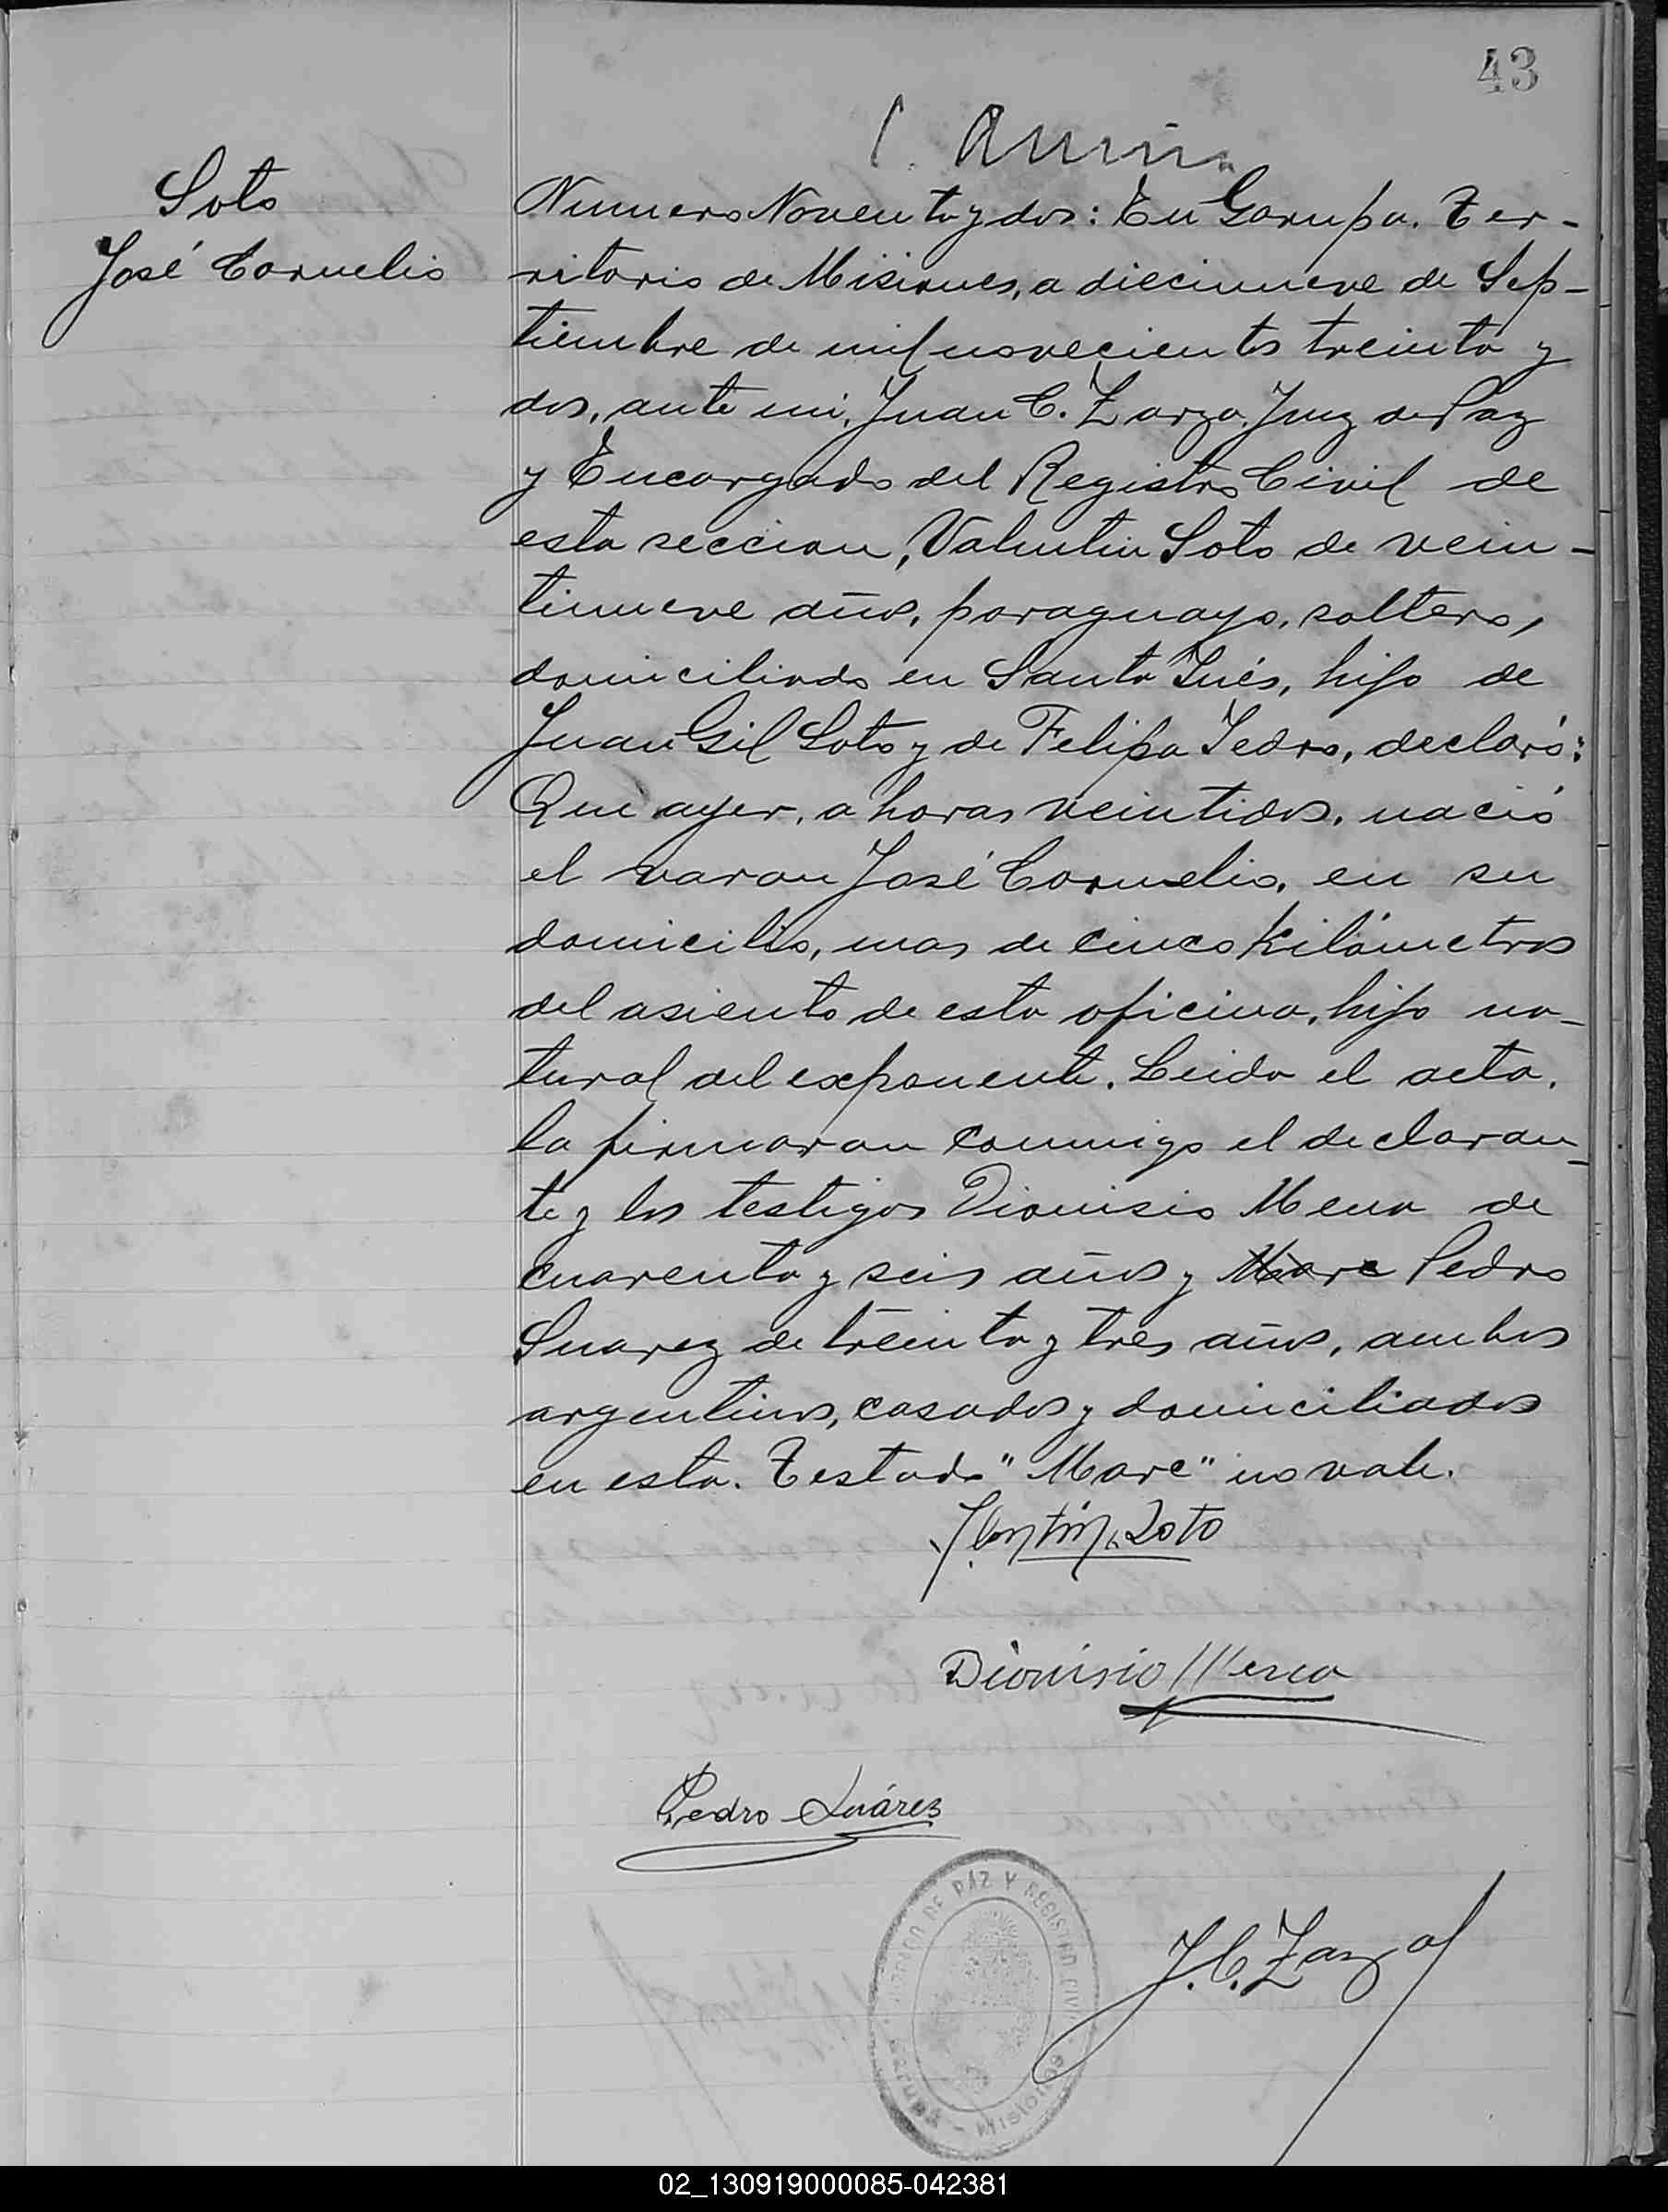 43
Soto
José Cornelio
Numero Noventa y dos: En Garupa. Ter-
ritorio de Misiones, a diecinueve de Sep-
tiembre de mil novecientos treinta y
dos, ante mi, Juan C. Zarza, Juez de Paz
y Encargado del Registro Civil de
esta seccion, Valentin Soto de vein-
tinueve años, paraguayo, soltero,
domiciliado en Santa Inés, hijo de
Juan Gil Soto y de Felipa, declaró:
Que ayer, a horas veintidos, nació
el varon José Cornelio, en su
domicilio, mas de cinco kilómetros
del asiento de esta oficina, hijo na-
tural del exponente. Leida el acta,
la firmaron conmigo el declaran-
te y los testigos Dionisio Mena de
cuarenta y seis años y Marc Pedro
Suarez de treinta y tres años, ambos
argentinos, casados y domiciliados
en esta. Testado "Marc" no vale.
Soto
Dionisio Mena
Pedro Suárez
JUZGADO DE PAZ Y REGISTRO CIVIL
GARUPÁ - MISIONES
J. C. Zarza
02_130919000085-042381